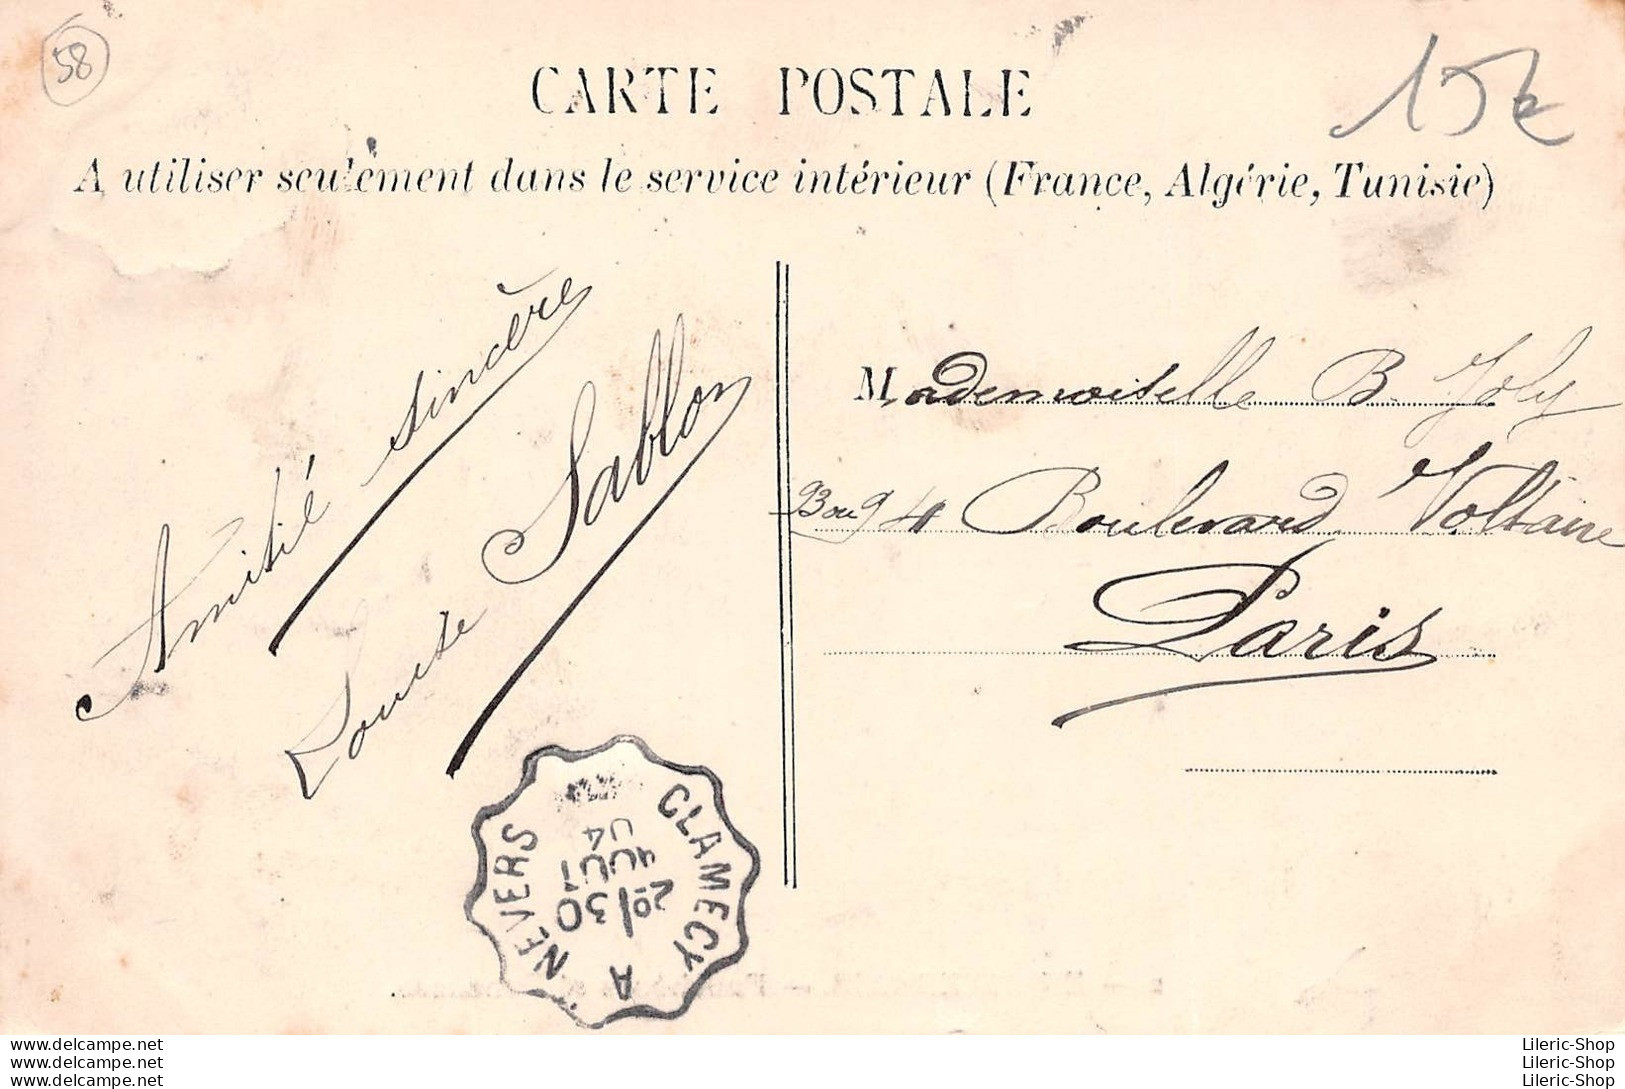 58
15€
CARTE POSTALE
A utiliser seulement dans le service intérieur (France, Algérie, Tunisie)
Amitié sincère
Louise Sablon
Mademoiselle B. Joly
94 Boulevard Voltaire
Paris
CLAMECY A NEVERS
2º/30
AOUT
04
www.delcampe.net
www.delcampe.net
www.delcampe.net
Lileric-Shop
Lileric-Shop
Lileric-Shop